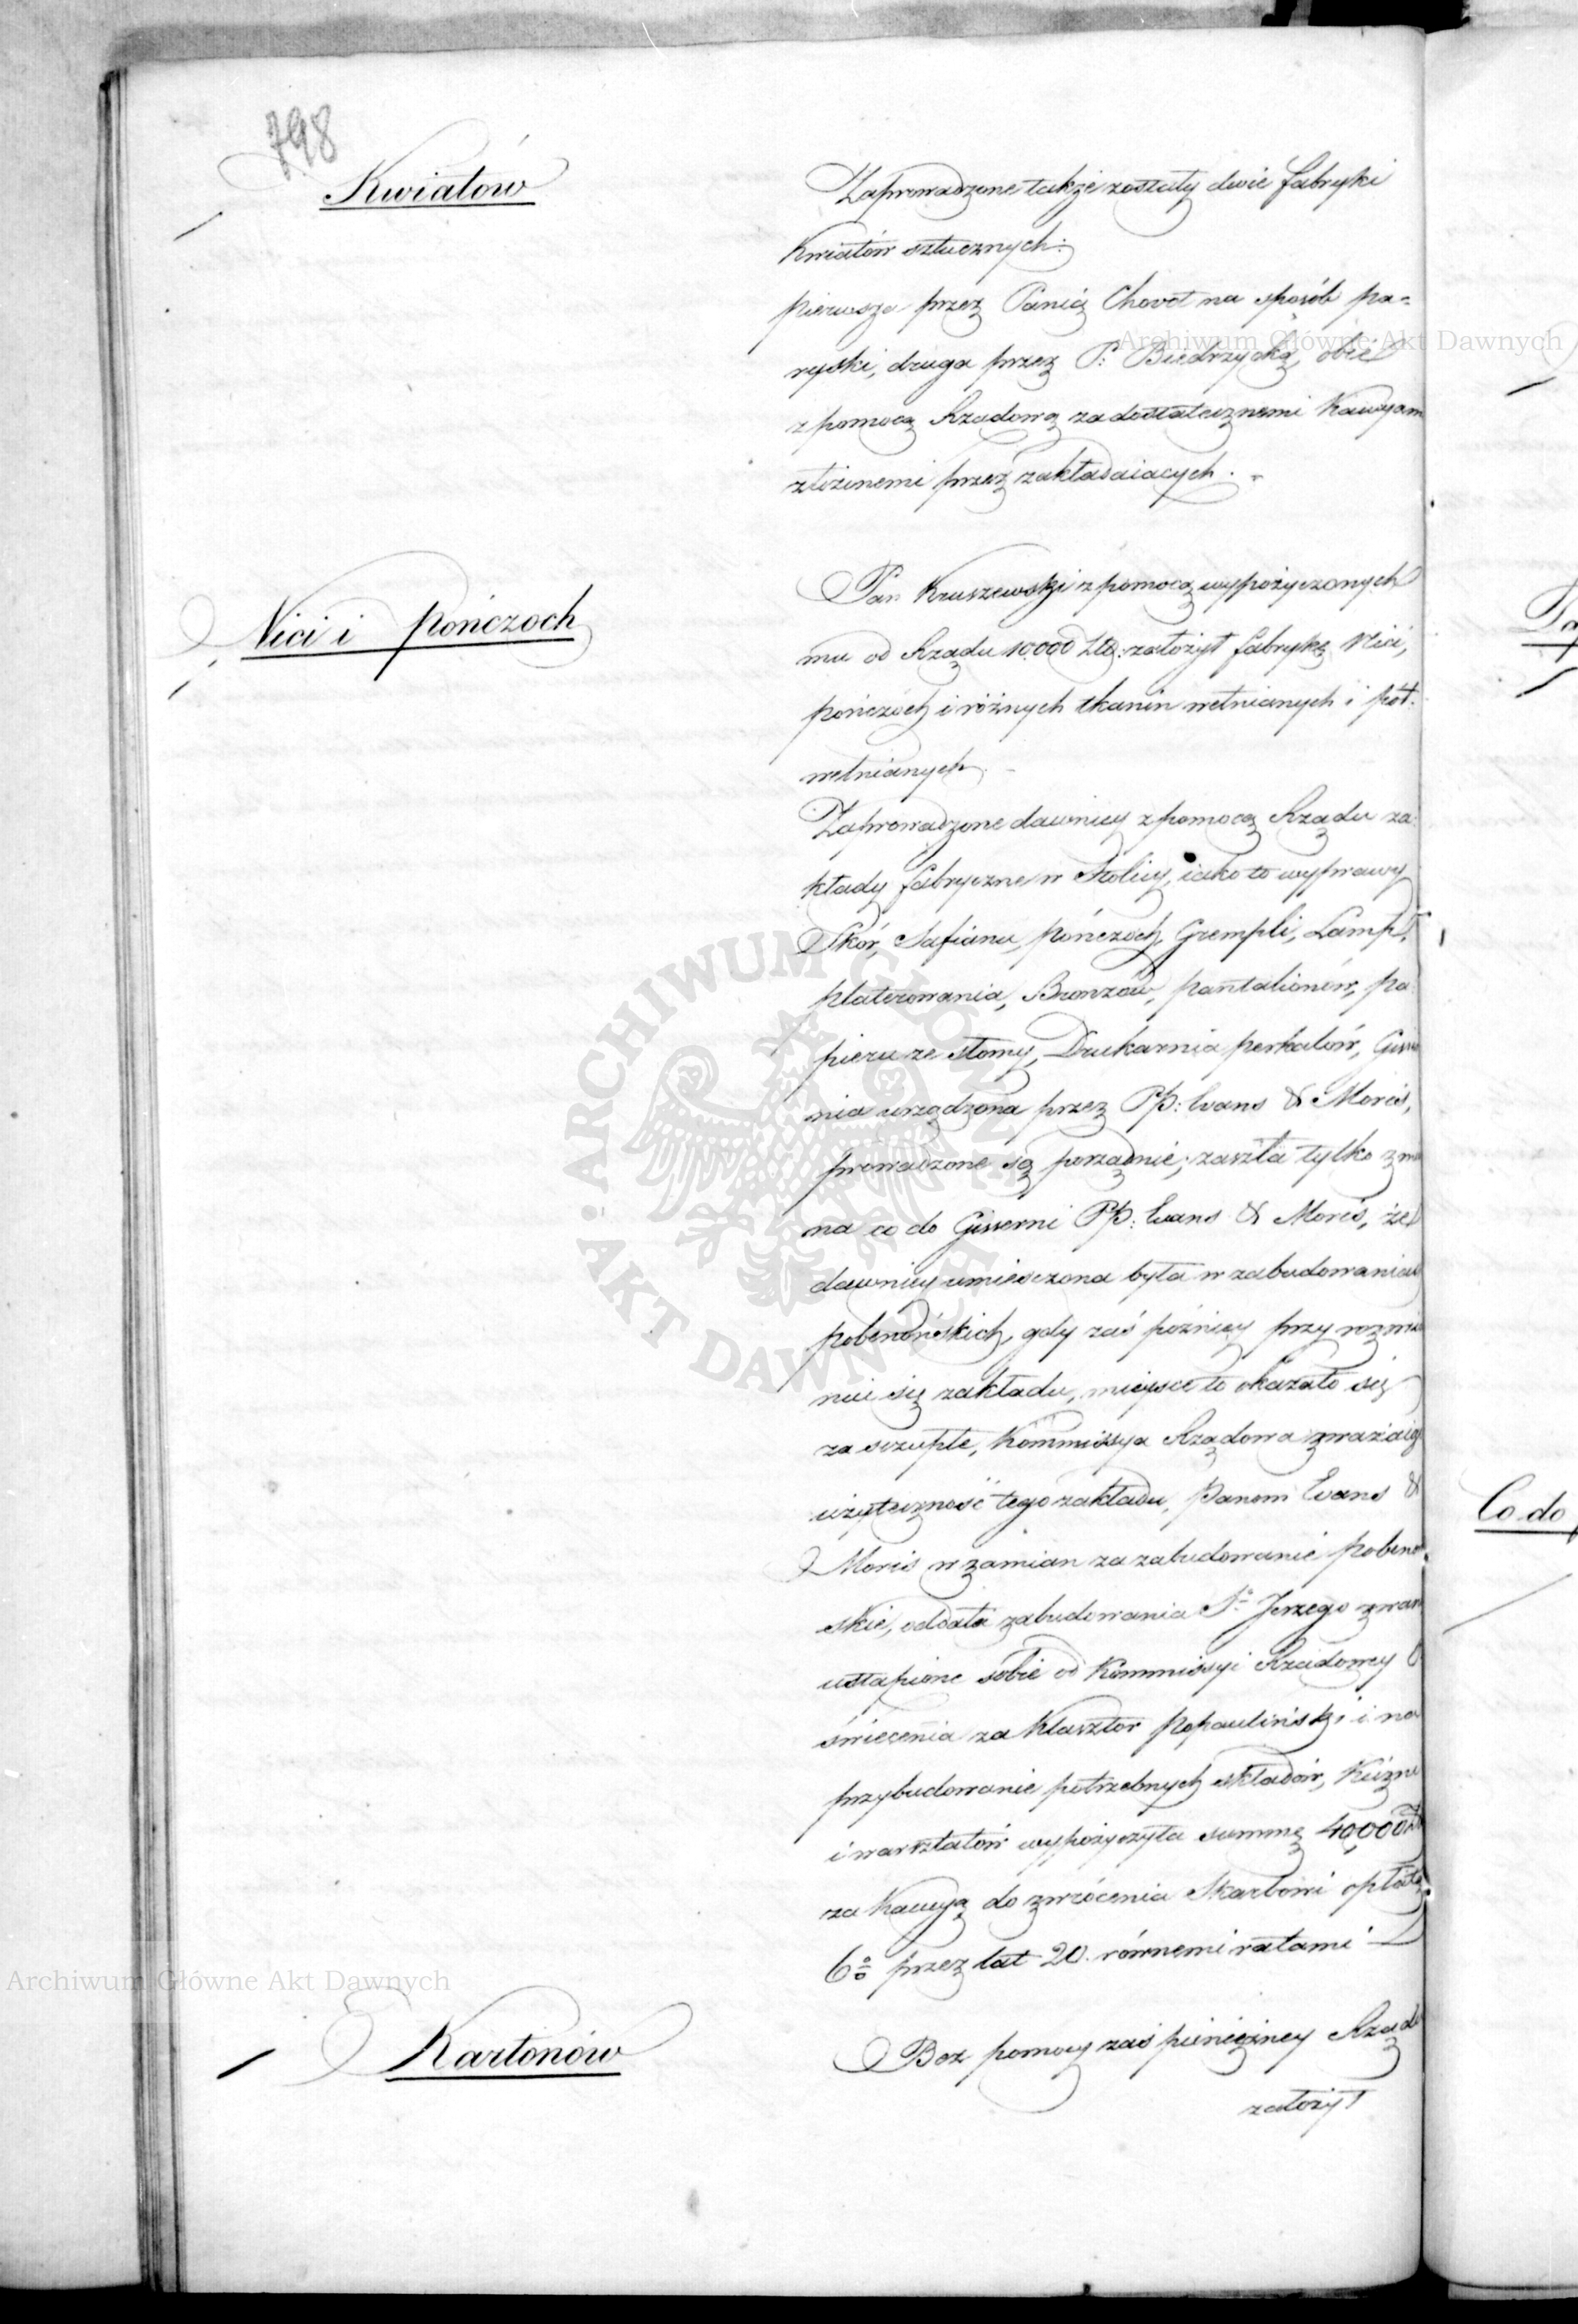 798
Kwiatów
Zaprowadzone także zostały dwie fabryki
Kwiatów sztucznych:
pierwsza przez Panią Chovot na sposób pa-
ryski, druga przez P: Biedrzycką, obie
z pomocą Rządową za dostatecznemi Kaucyam
złożonemi przez zakładaiących. -
Nici i pończoch
Pan Kruszewski z pomocą wypożyczonych
mu od Rządu 10.000 Zło: założył fabrykę Nici,
pończoch i różnych tkanin wełnianych i pół-
wełnianych. -
Zaprowadzone dawniey z pomocą Rządu za-
kłady fabryczne w Stolicy, iako to wyprawy
Skór, Safianu, pończoch, Grempli, Lamp,
platerowania, Bronzów, pantalionów, pa
pieru ze słomy, Drukarnia perkalów, Gisser
nia urządzona przez PP: Evans & Moris,
prowadzone są porządnie; zaszła tylko zmia
na co do Gisserni PP: Evans & Moris, że
dawniey umiesczona była w zabudowaniach
pobenońskich, gdy zaś później przy rozwi
nie się zakładu, mieysce to okazało się
za sczupłe, Kommissya Rządowa zważaiąc
użyteczność tego zakładu, Panom Evans &
Moris w zamian za zabudowanie pobenoń
skie, oddała zabudowania Sº Jerzego zwan
ustąpione sobie od Kommissyi Rządowey O
świecenia za Klasztor Popauliński i na
przybudowanie potrzebnych składów, Kuźni
i warsztatów wypożyczyła summę 40,000 Zł
za Kaucyą do zwrócenia Skarbowi opłatą
6% przez lat 20. równemi ratami
Kartonów
Bez pomocy zaś pieniężney Rządu
założył
Co do
Archiwum Główne Akt Dawnych
Archiwum Główne Akt Dawnych
ARCHIWUM GŁÓWNE AKT DAWNYCH